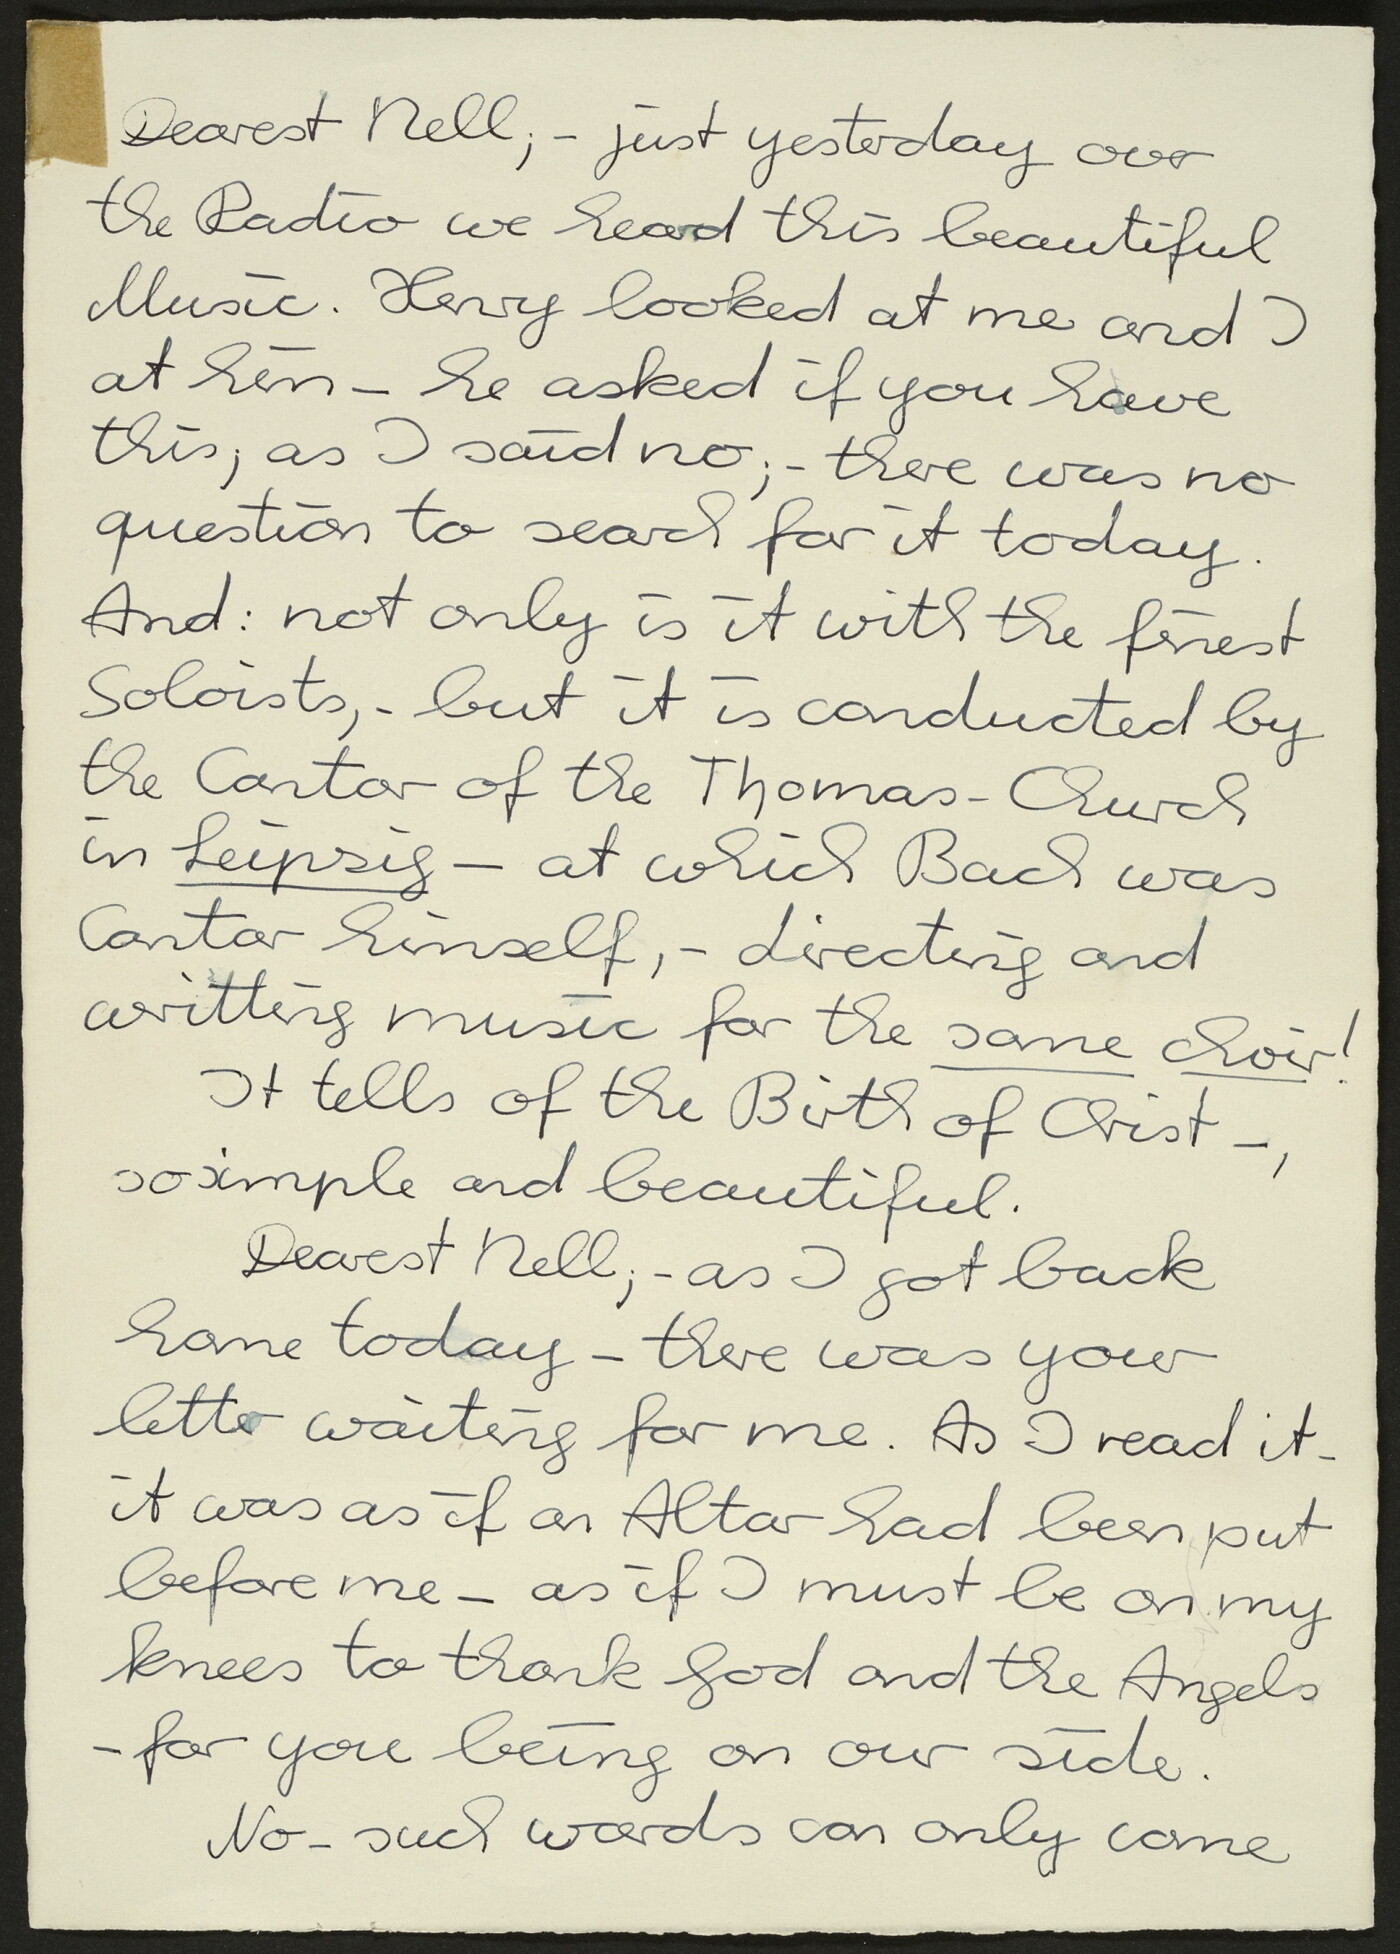 Dearest Nell; - just yesterday over
the Radio we heard this beautiful
Music. Henry looked at me and I
at him - he asked if you have
this; as I said no; - there was no
question to search for it today.
And: not only is it with the finest
Soloists, - but it is conducted by
the Cantor of the Thomas - Church
in Leipzig - at which Bach was
Cantor himself, - directing and
writting music for the same choir!
It tells of the Birth of Christ -,
so simple and beautiful.
Dearest Nell; - as I got back
home today - there was your
letter waiting for me. As I read it -
it was as if an Altar had been put
before me - as if I must be on my
knees to thank God and the Angels
- for you being on our side.
No - such words can only come